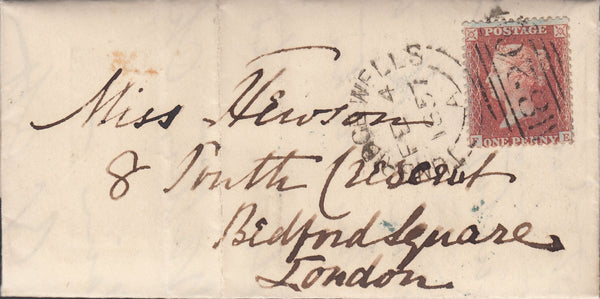 POSTAGE
ONE PENNY
E
WELLS
FE 4
1857
A
Miss Hewson
8 South Crescent
Bedford Square
London